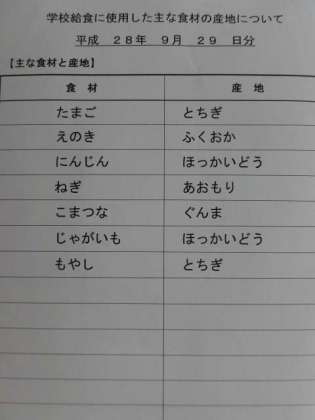 学校給食に使用した主な食材の産地について
平成 28年 9月 29 日分
【主な食材と産地】
食 材 産 地
たまご とちぎ
えのき ふくおか
にんじん ほっかいどう
ねぎ あおもり
こまつな ぐんま
じゃがいも ほっかいどう
もやし とちぎ